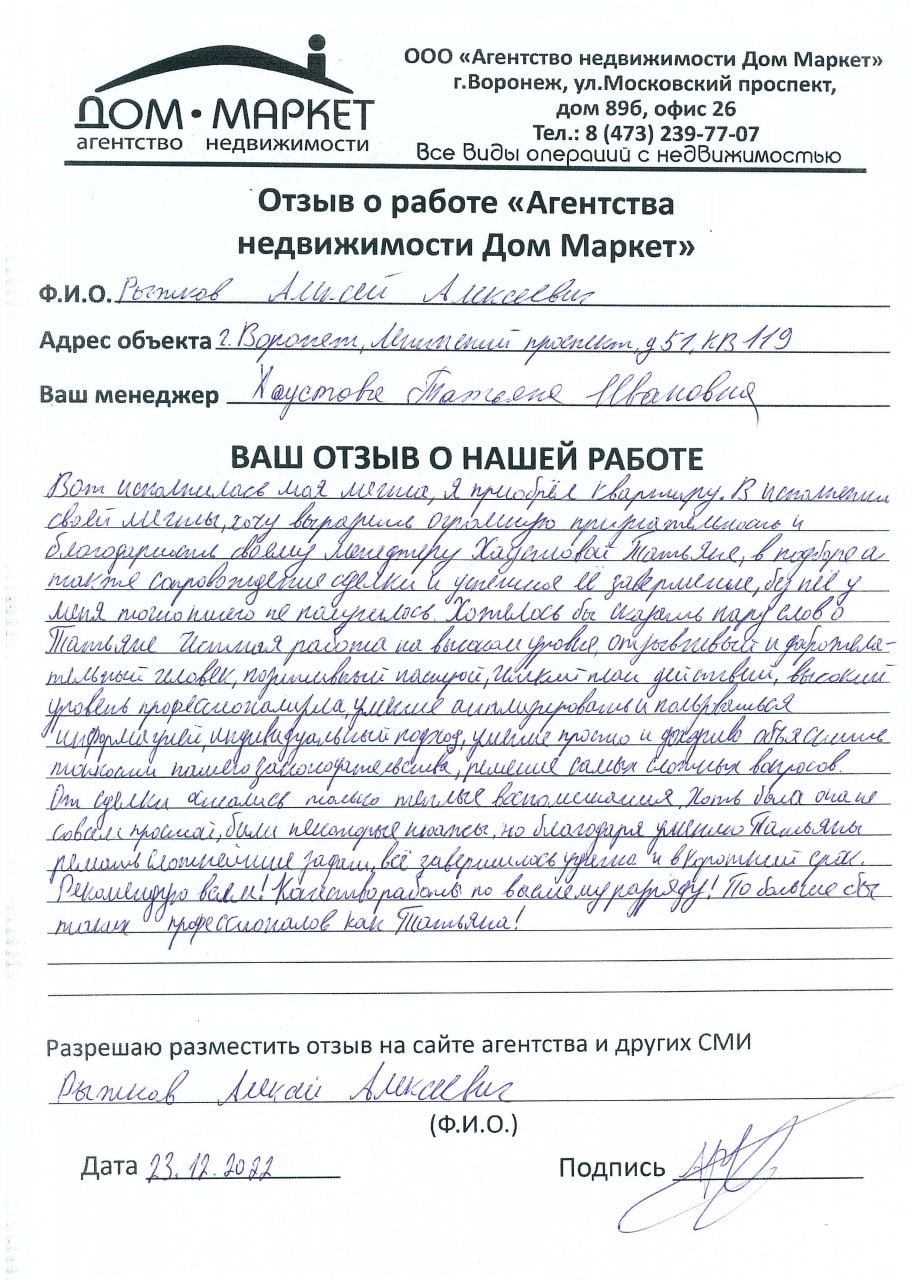 ДОМ • МАРКЕТ
агентство недвижимости
ООО «Агентство недвижимости Дом Маркет»
г.Воронеж, ул.Московский проспект,
дом 89б, офис 26
Тел.: 8 (473) 239-77-07
Все виды операций с недвижимостью
Отзыв о работе «Агентства
недвижимости Дом Маркет»
Ф.И.О. Рыжков Алексей Алексеевич
Адрес объекта г. Воронеж, Ленинский проспект, д 51, кв 119
Ваш менеджер Хаустова Татьяна Ивановна
ВАШ ОТЗЫВ О НАШЕЙ РАБОТЕ
Вот исполнилась моя мечта, я приобрёл квартиру. В исполнении
своей мечты, хочу выразить огромную признательность и
благодарность своему менеджеру Хаустовой Татьяне, в подборе а
также сопровождение сделки и успешное её завершение, без неё у
меня точно ничего не получилось. Хотелось бы сказать пару слов о
Татьяне работа на высоком уровне, отзывчивый и доброжела-
тельный человек, позитивный настрой, чёткий план действий, высокий
уровень профессионализма, умение анализировать и пользоваться
информацией, индивидуальный подход, умение просто и доходчиво объяснить
тонкости нашего законодательства, решение самых сложных вопросов.
От сделки остались только теплые воспоминания. Хоть была она не
совсем простой, были некоторые нюансы, но благодаря умению Татьяны
решать сложнейшие задачи, всё завершилось удачно и в короткий срок.
Рекомендую всем! Качество работы по высшему разряду! По больше бы
таких профессионалов как Татьяна!
Разрешаю разместить отзыв на сайте агентства и других СМИ
Рыжков Алексей Алексеевич
(Ф.И.О.)
Дата 23.12.2022 Подпись